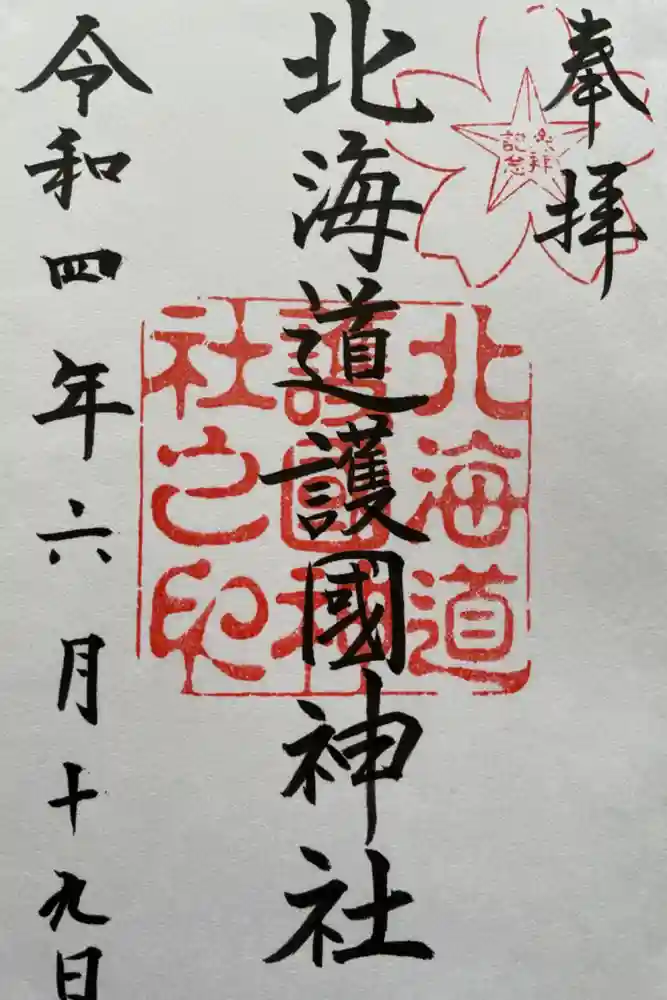 奉拝
参拝
記念
北海道護國神社
北海道
護國神
社之印
令和四年六月十九日